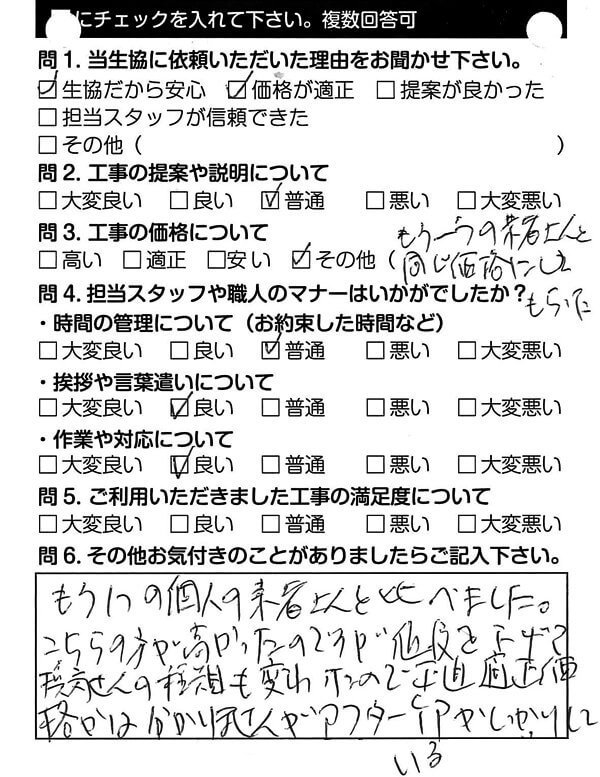 にチェックを入れて下さい。複数回答可
問1. 当生協に依頼いただいた理由をお聞かせ下さい。
☑生協だから安心 ☑価格が適正 □提案が良かった
□担当スタッフが信頼できた
□その他（ ）
問2. 工事の提案や説明について
□大変良い □良い ☑普通 □悪い □大変悪い
問3. 工事の価格について
□高い □適正 □安い ☑その他（
もう一つの業者さんと
同じ価格にして
もらった
問4. 担当スタッフや職人のマナーはいかがでしたか？
・時間の管理について（お約束した時間など）
□大変良い □良い ☑普通 □悪い □大変悪い
・挨拶や言葉遣いについて
□大変良い ☑良い □普通 □悪い □大変悪い
・作業や対応について
□大変良い ☑良い □普通 □悪い □大変悪い
問5. ご利用いただきました工事の満足度について
□大変良い □良い □普通 □悪い □大変悪い
問6. その他お気付きのことがありましたらご記入下さい。
もう1つの個人の業者さんと比べました。
こちらの方が高かったのですが値段を下げて
さんの種類も変わ ので正直適正価
格かは分かりませんがアフター がしっかりして
いる